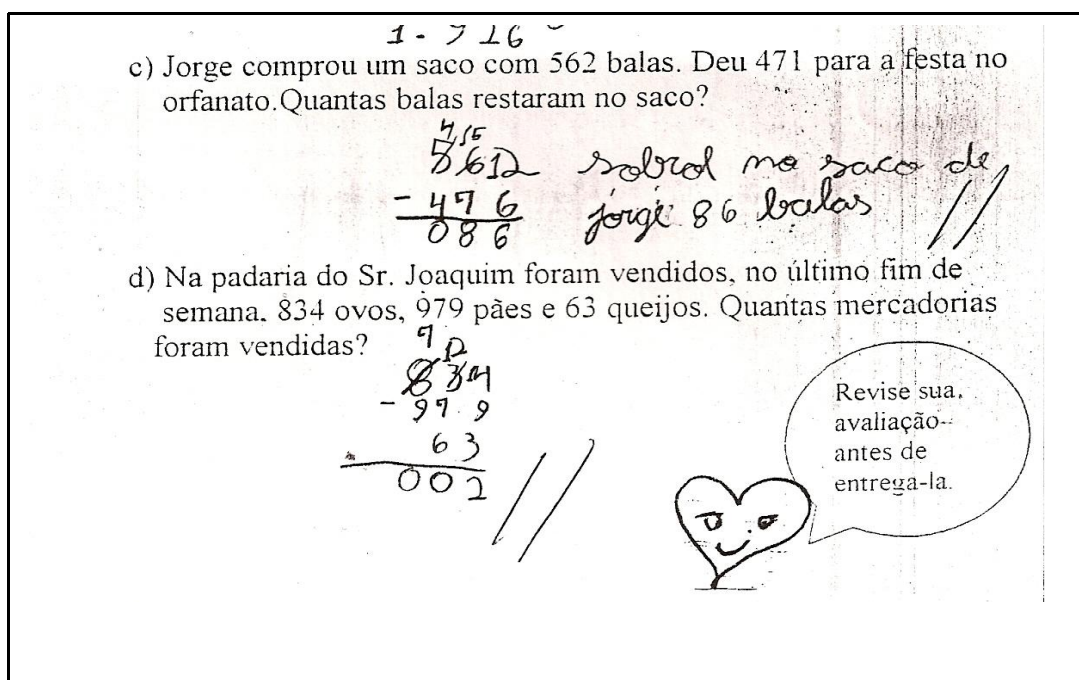 1. 916
c) Jorge comprou um saco com 562 balas. Deu 471 para a festa no
orfanato.Quantas balas restaram no saco?
4 15
5 6 12 sobrol no saco de
- 4 7 6 jorge 86 balas
0 8 6
d) Na padaria do Sr. Joaquim foram vendidos, no último fim de
semana. 834 ovos, 979 pães e 63 queijos. Quantas mercadorias
foram vendidas?
7 12
8 3 14
- 9 7 9
6 3
0 0 2
Revise sua.
avaliação
antes de
entrega-la.